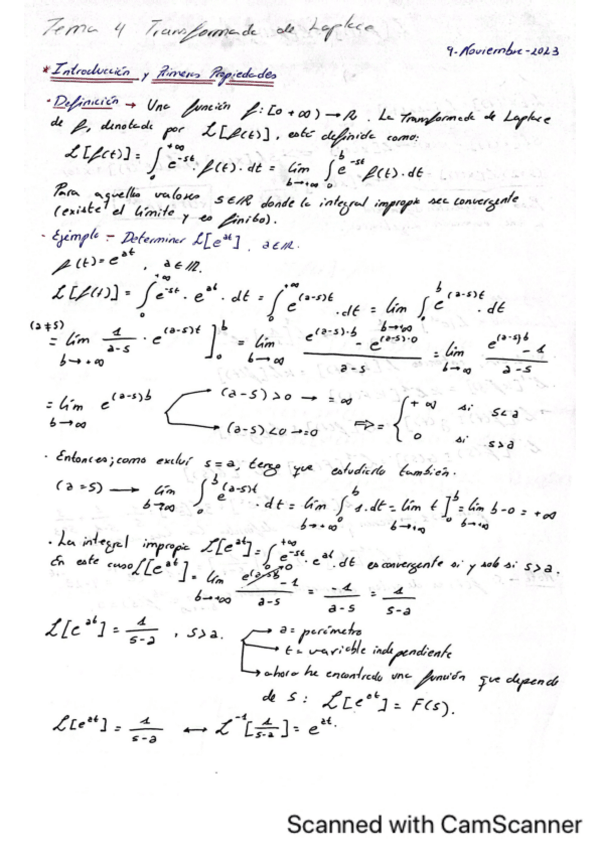 Tema 4 Transformada de Laplace
9-Noviembre-2023
* Introducción y Primeras Propiedades
· Definición → Una función f: [0 +∞) → R. La Transformada de Laplace
de f, denotada por L[f(t)], está definida como:
L[f(t)] = ∫₀^{+∞} e^{-st} · f(t) · dt = lim_{b→+∞} ∫₀^b e^{-st} f(t) · dt
Para aquellos valores s∈R donde la integral impropia sea convergente
(existe el límite y es finito).
· Ejemplo - Determinar L[e^{at}], a∈R.
f(t) = e^{at}, a∈R.
L[f(t)] = ∫₀^{+∞} e^{-st} · e^{at} · dt = ∫₀^{+∞} e^{(a-s)t} · dt = lim_{b→+∞} ∫₀^b e^{(a-s)t} · dt
(a≠s) = lim_{b→+∞} 1/(a-s) · e^{(a-s)t} ]₀^b = lim_{b→∞} (e^{(a-s)·b} - e^{(a-s)·0})/(a-s) = lim_{b→∞} (e^{(a-s)b} - 1)/(a-s)
= lim_{b→∞} e^{(a-s)b} (a-s)>0 → = ∞
(a-s)<0 → =0 => = { +∞ si s<a
0 si s>a
· Entonces; como excluí s=a, tengo que estudiarlo también.
(a=s) → lim_{b→∞} ∫₀^b e^{(a-s)t} · dt = lim_{b→+∞} ∫₀^b 1 · dt = lim_{b→+∞} t ]₀^b = lim_{b→+∞} b-0 = +∞
· La integral impropia L[e^{at}] = ∫₀^{+∞} e^{-st} · e^{at} · dt es convergente si y solo si s>a.
En este caso L[e^{at}] = lim_{b→+∞} (e^{(a-s)b} - 1)/(a-s) = -1/(a-s) = 1/(s-a)
L[e^{at}] = 1/(s-a), s>a. → a = parámetro
→ t = variable independiente
→ ahora he encontrado una función que depende
de s: L[e^{at}] = F(s).
L[e^{at}] = 1/(s-a) ↔ L^{-1}[1/(s-a)] = e^{at}.
Scanned with CamScanner